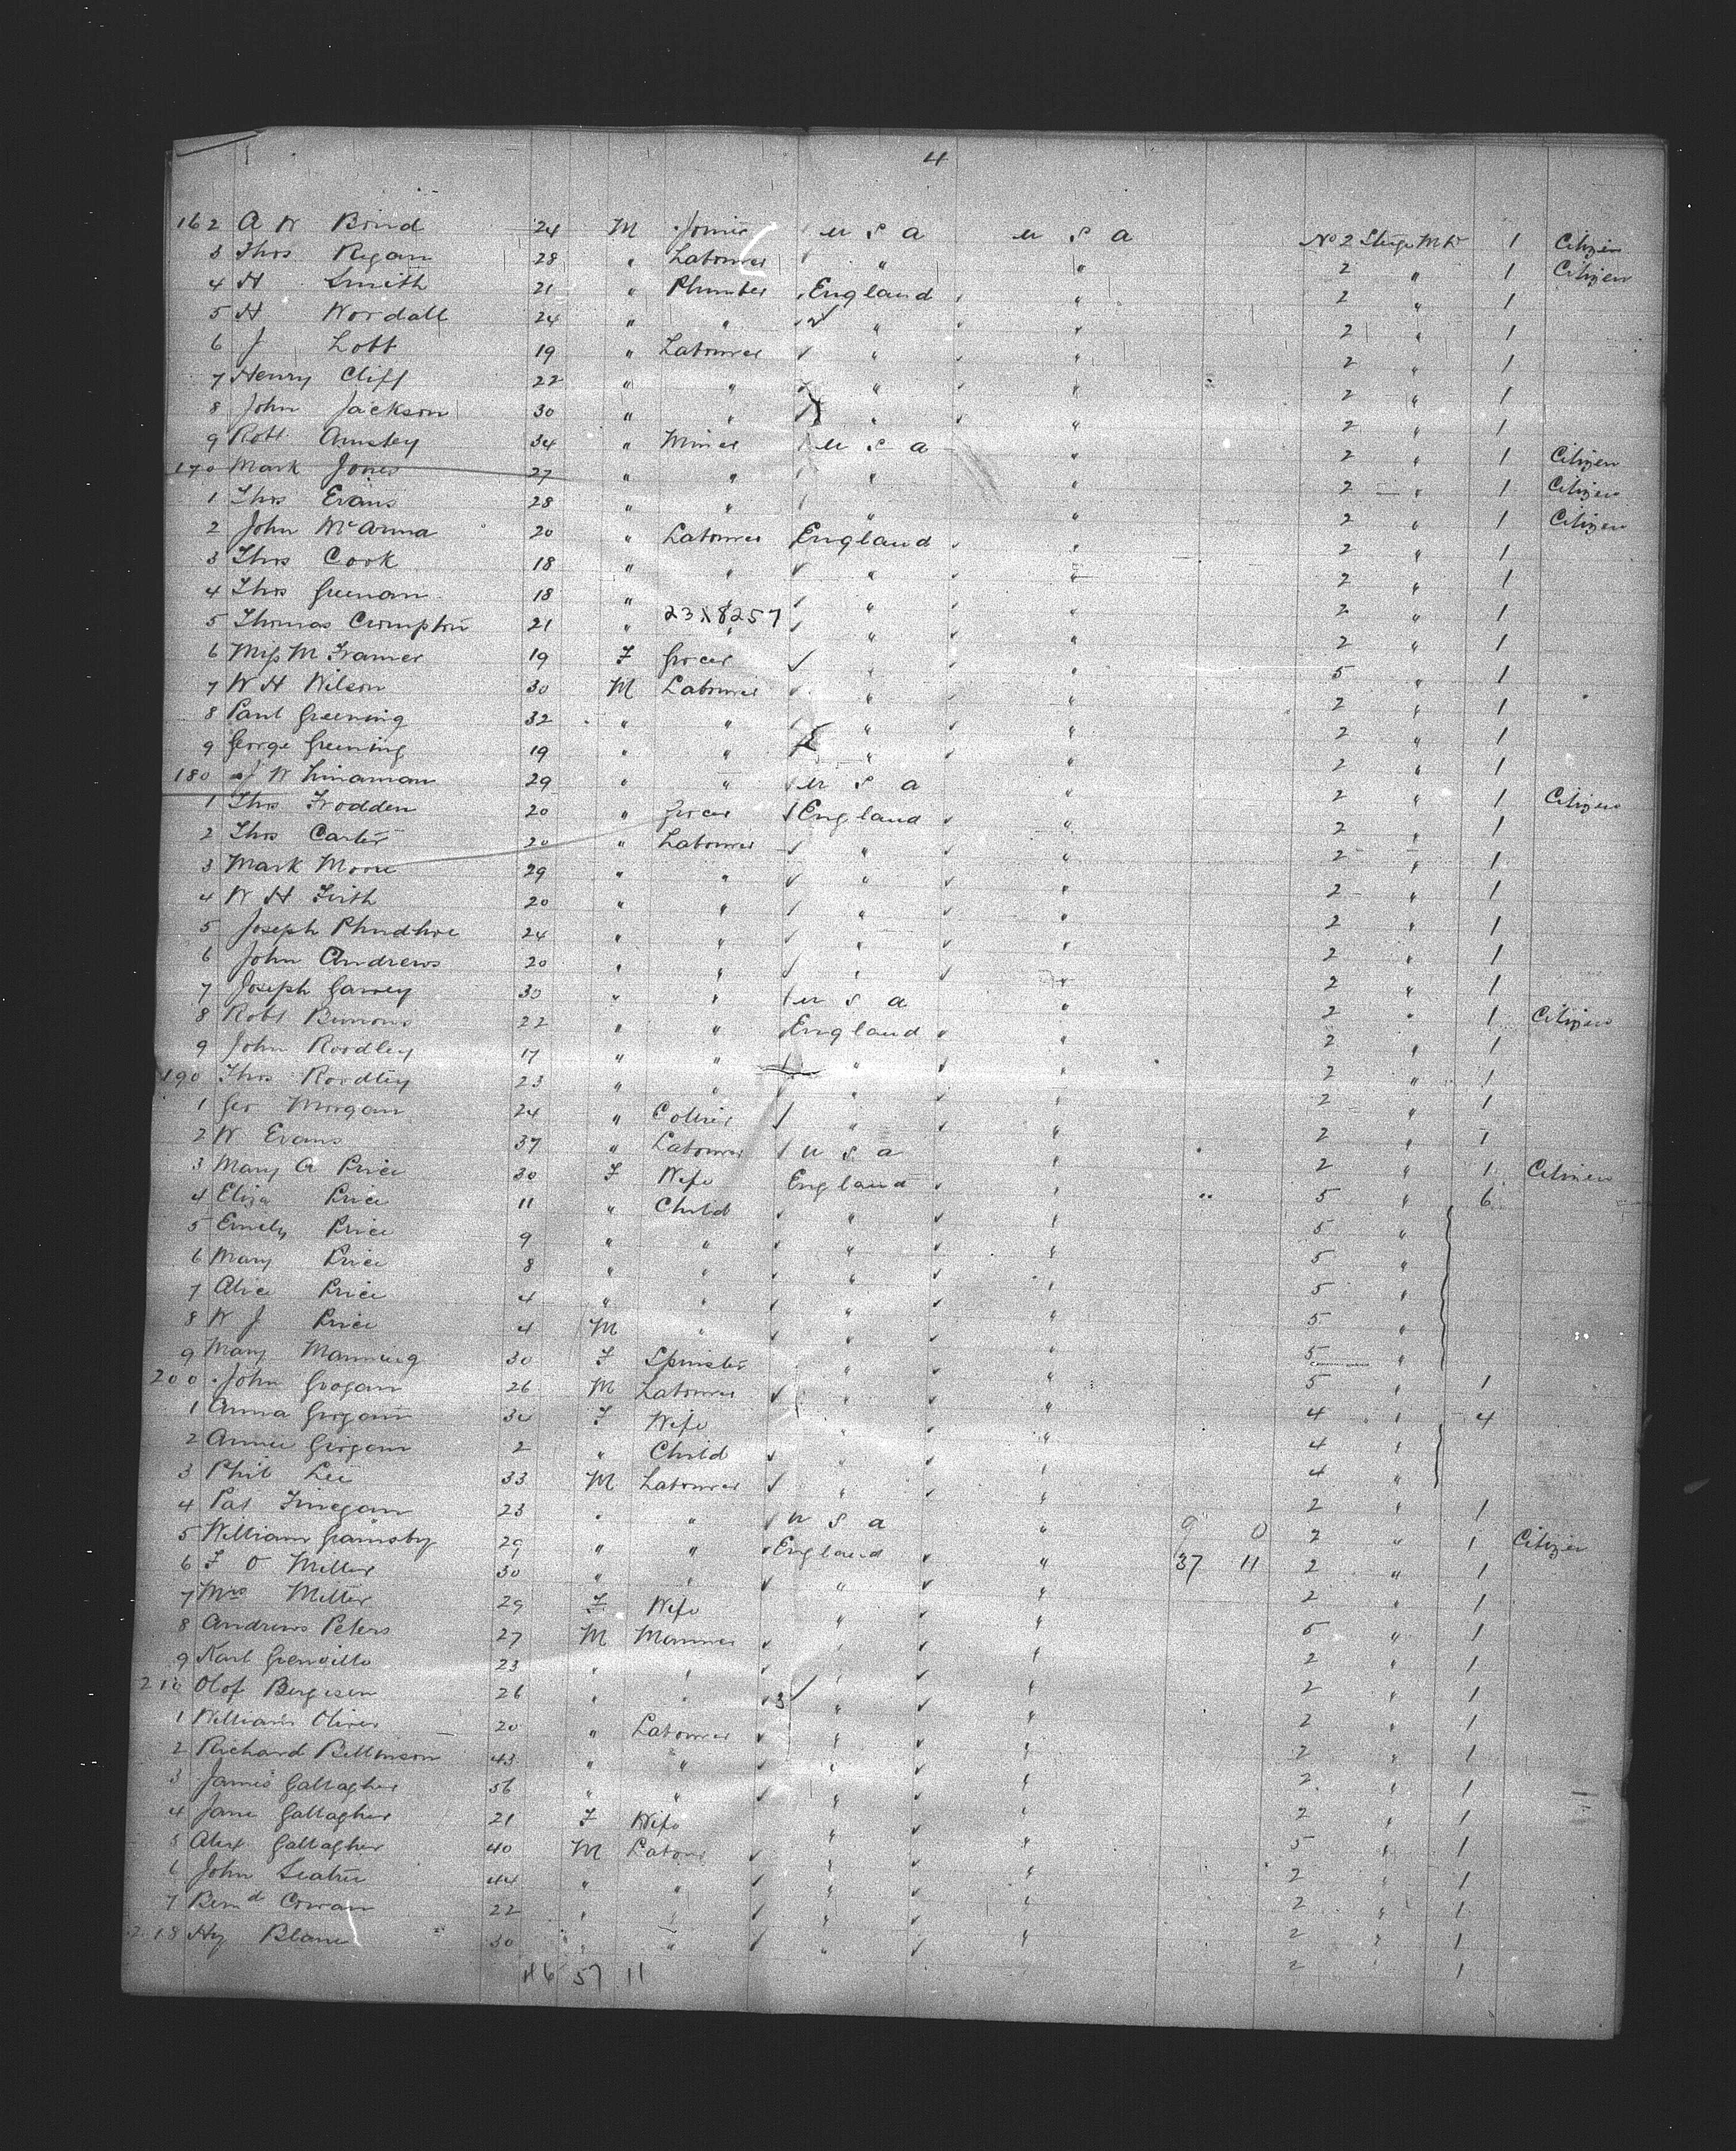 4
162 A W Bond 24 M Joiner U S A U S A No 2 Steerge 1 Citizen
3 Thos Regan 28 " Labourer " " 2 " 1 Citizen
4 H Smith 21 " Plumber England " 2 " 1
5 H Wordall 24 " " " " 2 " 1
6 J Lott 19 " Labourer " " 2 " 1
7 Henry Cliff 22 " " " " 2 " 1
8 John Jackson 30 " " " " 2 " 1
9 Robt Amstey 34 " Miner U S A " 2 " 1 Citizen
170 Mark Jones 27 " " " " 2 " 1 Citizen
1 Thos Evans 28 " " " " 2 " 1 Citizen
2 John McAnna 20 " Labourer England " 2 " 1
3 Thos Cook 18 " " " " 2 " 1
4 Thos Greenan 18 " " " 2 " 1
5 Thomas Crompton 21 " 23X8257 " " 2 " 1
6 Miss M Framer 19 F Grocer " " 5 " 1
7 W H Wilson 30 M Labourer " " 2 " 1
8 Paul Greening 32 " " " " 2 " 1
9 George Greening 19 " " " " 2 " 1
180 J W Linaman 29 " " U S A " 2 " 1 Citizen
1 Thos Frodden 20 " Grocer England " 2 " 1
2 Thos Carter 20 " Labourer " " 2 " 1
3 Mark Moore 29 " " " " 2 " 1
4 W H Firth 20 " " " " 2 " 1
5 Joseph 24 " " " " 2 " 1
6 John Andrews 20 " " " " 2 " 1
7 Joseph Garvey 30 " " U S A " 2 " 1 Citizen
8 Robt Burrows 22 " " England " 2 " 1
9 John Roodley 17 " " " " 2 " 1
190 Thos Roodley 23 " " " " 2 " 1
1 Geo Morgan 24 " Collier " " 2 " 1
2 W Evans 37 " Labourer U S A " 2 " 1 Citizen
3 Mary A Price 30 F Wife England " 5 " 6
4 Eliza Price 11 " Child " " 5 "
5 Emely Price 9 " " " " 5 "
6 Mary Price 8 " " " " 5 "
7 Alice Price 4 " " " " 5 "
8 W J Price 4 M " " " 5 "
9 Mary Manning 30 F Spinster " " 5 " 1
200 John Grogan 26 M Labourer " " 4 " 4
1 Anna Grogan 34 F Wife " " 4 "
2 Annie Grogan 2 " Child " " 4 "
3 Phil Lee 33 M Labourer " " 2 " 1
4 Pat Finegan 23 " " U S A " 9 0 2 " 1 Citizen
5 William Grainsby 29 " " England " 37 11 2 " 1
6 F O Miller 30 " " " " 2 " 1
7 Mrs Miller 29 F Wife " " 5 " 1
8 Andrews Peters 27 M Mariner " " 2 " 1
9 Karl 23 " " " " 2 " 1
210 Olof Bergesen 26 " " 3 " " 2 " 1
1 William Oliver 20 " Labourer " " 2 " 1
2 Richard Billinson 43 " " " " 2 " 1
3 James Gallagher 56 " " " " 2 " 1
4 Jane Gallagher 21 F Wife " " 5 " 1
5 Alex Gallagher 40 M Labour " " 2 " 1
6 John 44 " " " " 2 " 1
7 Bernd Cowan 22 " " " " 2 " 1
218 Hy Blane 30 " " " " 2 " 1
46 57 11